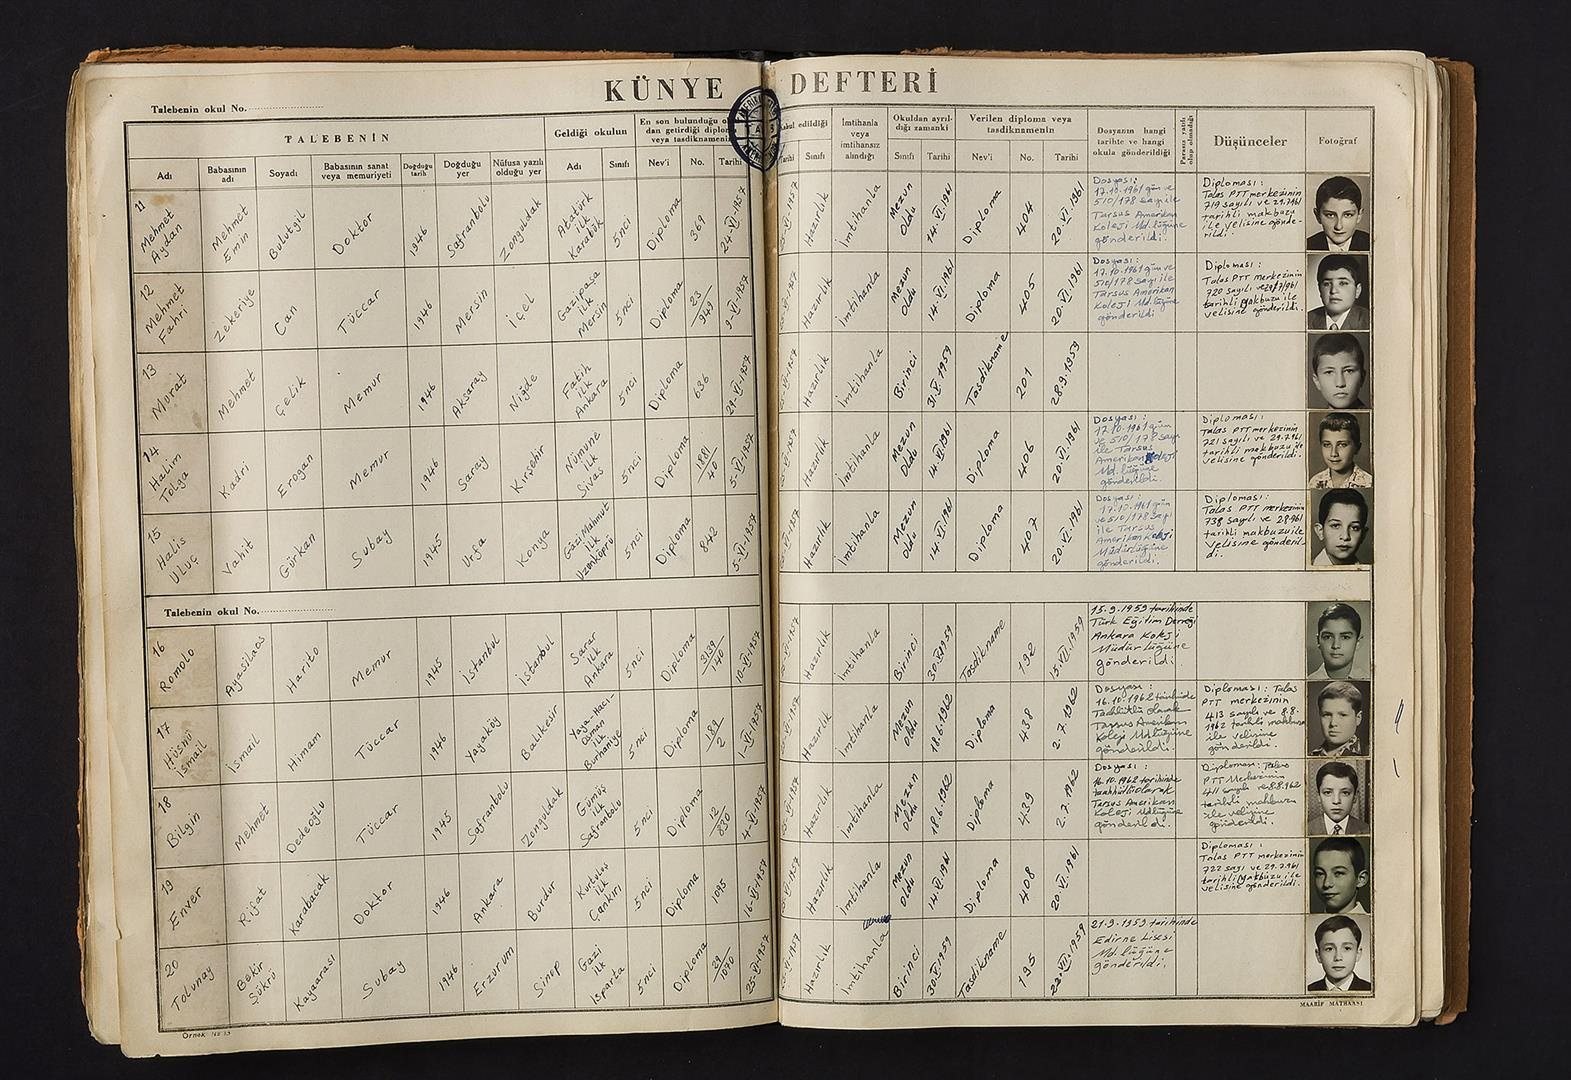 KÜNYE DEFTERİ
Talebenin okul No.
TALEBENİN
Geldiği okulun
En son bulunduğu
dan getirdiği
veya tasdiknamenin
Adı
Babasının
adı
Soyadı
Babasının sanat
veya memuriyeti
Doğduğu
tarih
Doğduğu
yer
Nüfusa yazılı
olduğu yer
Adı
Sınıfı
Nev'i
No.
Tarihi
edildiği
Tarihi
Sınıfı
İmtihanla
veya
imtihansız
alındığı
Okuldan ayrıl-
dığı zamanki
Sınıfı
Tarihi
Verilen diploma veya
tasdiknamenin
Nev'i
No.
Tarihi
Dosyanın hangi
tarihte ve hangi
okula gönderildiği
Parasız yatılı
olup olmadığı
Düşünceler
Fotoğraf
11
Mehmet
Aydan
Mehmet
Emin
Bulutgil
Doktor
1946
Safranbolu
Zonguldak
Atatürk
ilk
Karabük
5nci
Diploma
369
24-VI-1957
Hazırlık
İmtihanla
Mezun
Oldu
14.VI.1961
Diploma
404
20.VI.1961
Dosyası:
17.10.1961 gün ve
510/178 sayı ile
Tarsus Amerikan
Koleji Md.lüğüne
gönderildi.
Diploması:
Talas PTT merkezinin
719 sayılı ve 29.7.961
tarihli makbuzu
ile velisine gönde-
rildi.
12
Mehmet
Fahri
Zekeriye
Can
Tüccar
1946
Mersin
İçel
Gazipaşa
ilk
Mersin
5nci
Diploma
23
949
9-VI-1957
Hazırlık
İmtihanla
Mezun
Oldu
14.VI.1961
Diploma
405
20.VI.1961
Dosyası:
17.10.1961 gün ve
510/178 sayı ile
Tarsus Amerikan
Koleji Md.lüğüne
gönderildi
Diploması:
Talas PTT merkezinin
720 sayılı ve 29/7/961
tarihli makbuzu ile
velisine gönderildi.
13
Morat
Mehmet
Çelik
Memur
1946
Aksaray
Niğde
Fatih
ilk
Ankara
5nci
Diploma
636
29-VI-1957
Hazırlık
İmtihanla
Birinci
31.V.1959
Tasdikname
201
28.9.1959
14
Halim
Tolga
Kadri
Erogan
Memur
1946
Saray
Kırşehir
Numune
ilk
Sivas
5nci
Diploma
1881
40
5-VI-1957
Hazırlık
İmtihanla
Mezun
Oldu
14.VI.1961
Diploma
406
20.VI.1961
Dosyası:
17.10.1961 gün
ve 510/178 sayı
ile Tarsus
Amerikan Koleji
Md.lüğüne
gönderildi.
Diploması:
Talas PTT merkezinin
721 sayılı ve 29.7.961
tarihli makbuzu ile
velisine gönderildi.
15
Halis
Uluç
Vahit
Gürkan
Subay
1945
Urfa
Konya
Gazi Mahmut
ilk
Uzunköprü
5nci
Diploma
842
5-VI-1957
Hazırlık
İmtihanla
Mezun
oldu
14.VI.1961
Diploma
407
20.VI.1961
Dosyası:
17.10.1961 gün
ve 510/178 sayı
ile Tarsus
Amerikan Koleji
Müdürlüğüne
gönderildi.
Diploması:
Talas PTT merkezinin
738 sayılı ve
tarihli makbuzu ile
velisine gönderil-
di.
Talebenin okul No.
16
Romolo
Ayasilaos
Harito
Memur
1945
İstanbul
İstanbul
Sarar
ilk
Ankara
5nci
Diploma
3139
40
10-VI-1957
Hazırlık
İmtihanla
Birinci
Tasdikname
192
15.VII.1959
15.9.1959 tarihinde
Türk Eğitim Derneği
Ankara Koleji
Müdürlüğüne
gönderildi.
17
Hüsnü
İsmail
İsmail
Himam
Tüccar
1946
Yayaköy
Balıkesir
Yaya-Hacı-
Osman
ilk
Burhaniye
5nci
Diploma
189
2
1-VI-1957
Hazırlık
İmtihanla
Mezun
oldu
18.6.1962
Diploma
438
2.7.1962
Dosyası:
16.10.1962 tarihinde
Taahhütlü olarak
Tarsus Amerikan
Koleji Md.lüğüne
gönderildi.
Diploması: Talas
PTT merkezinin
413 sayılı ve 8.8.
1962 tarihli makbuzu
ile velisine
gönderildi.
18
Bilgin
Mehmet
Dedeoğlu
Tüccar
1945
Safranbolu
Zonguldak
Gümüş
ilk
Safranbolu
5nci
Diploma
12
830
4-VI-1957
Hazırlık
İmtihanla
Mezun
oldu
18.6.1962
Diploma
439
2.7.1962
Dosyası:
16.10.1962 tarihinde
taahhütlü olarak
Tarsus Amerikan
Koleji Md.lüğüne
gönderildi.
Diploması: Talas
PTT Merkezinin
411 sayılı ve 8.8.962
tarihli makbuzu
ile velisine
gönderildi.
19
Enver
Rifat
Karabacak
Doktor
1946
Ankara
Burdur
Kurtuluş
ilk
Çankırı
5nci
Diploma
1095
16-VI-1957
Hazırlık
İmtihanla
Mezun
Oldu
14.VI.1961
Diploma
408
20.VI.1961
Diploması:
Talas PTT merkezinin
722 sayı ve 29.7.961
tarihli makbuzu ile
velisine gönderildi.
20
Tolunay
Bekir
Şükrü
Kayaarası
Subay
1946
Erzurum
Sinop
Gazi
ilk
Isparta
5nci
Diploma
29
1070
25-VI-1957
Hazırlık
İmtihanla
Birinci
Tasdikname
195
22.VII.1959
21.9.1959 tarihinde
Edirne Lisesi
Md.lüğüne
gönderildi.
Örnek No 13
MAARİF MATBAASI